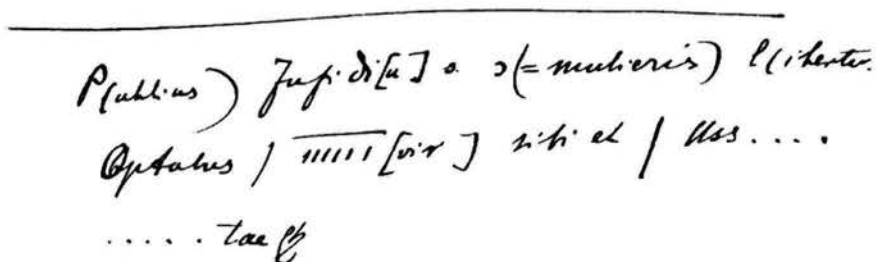 P(ublius) Fufidi[u]s ɔ(=mulieris) l(ibertus
Optatus / IIIIII [vir] sibi et / Uss....
.....tae